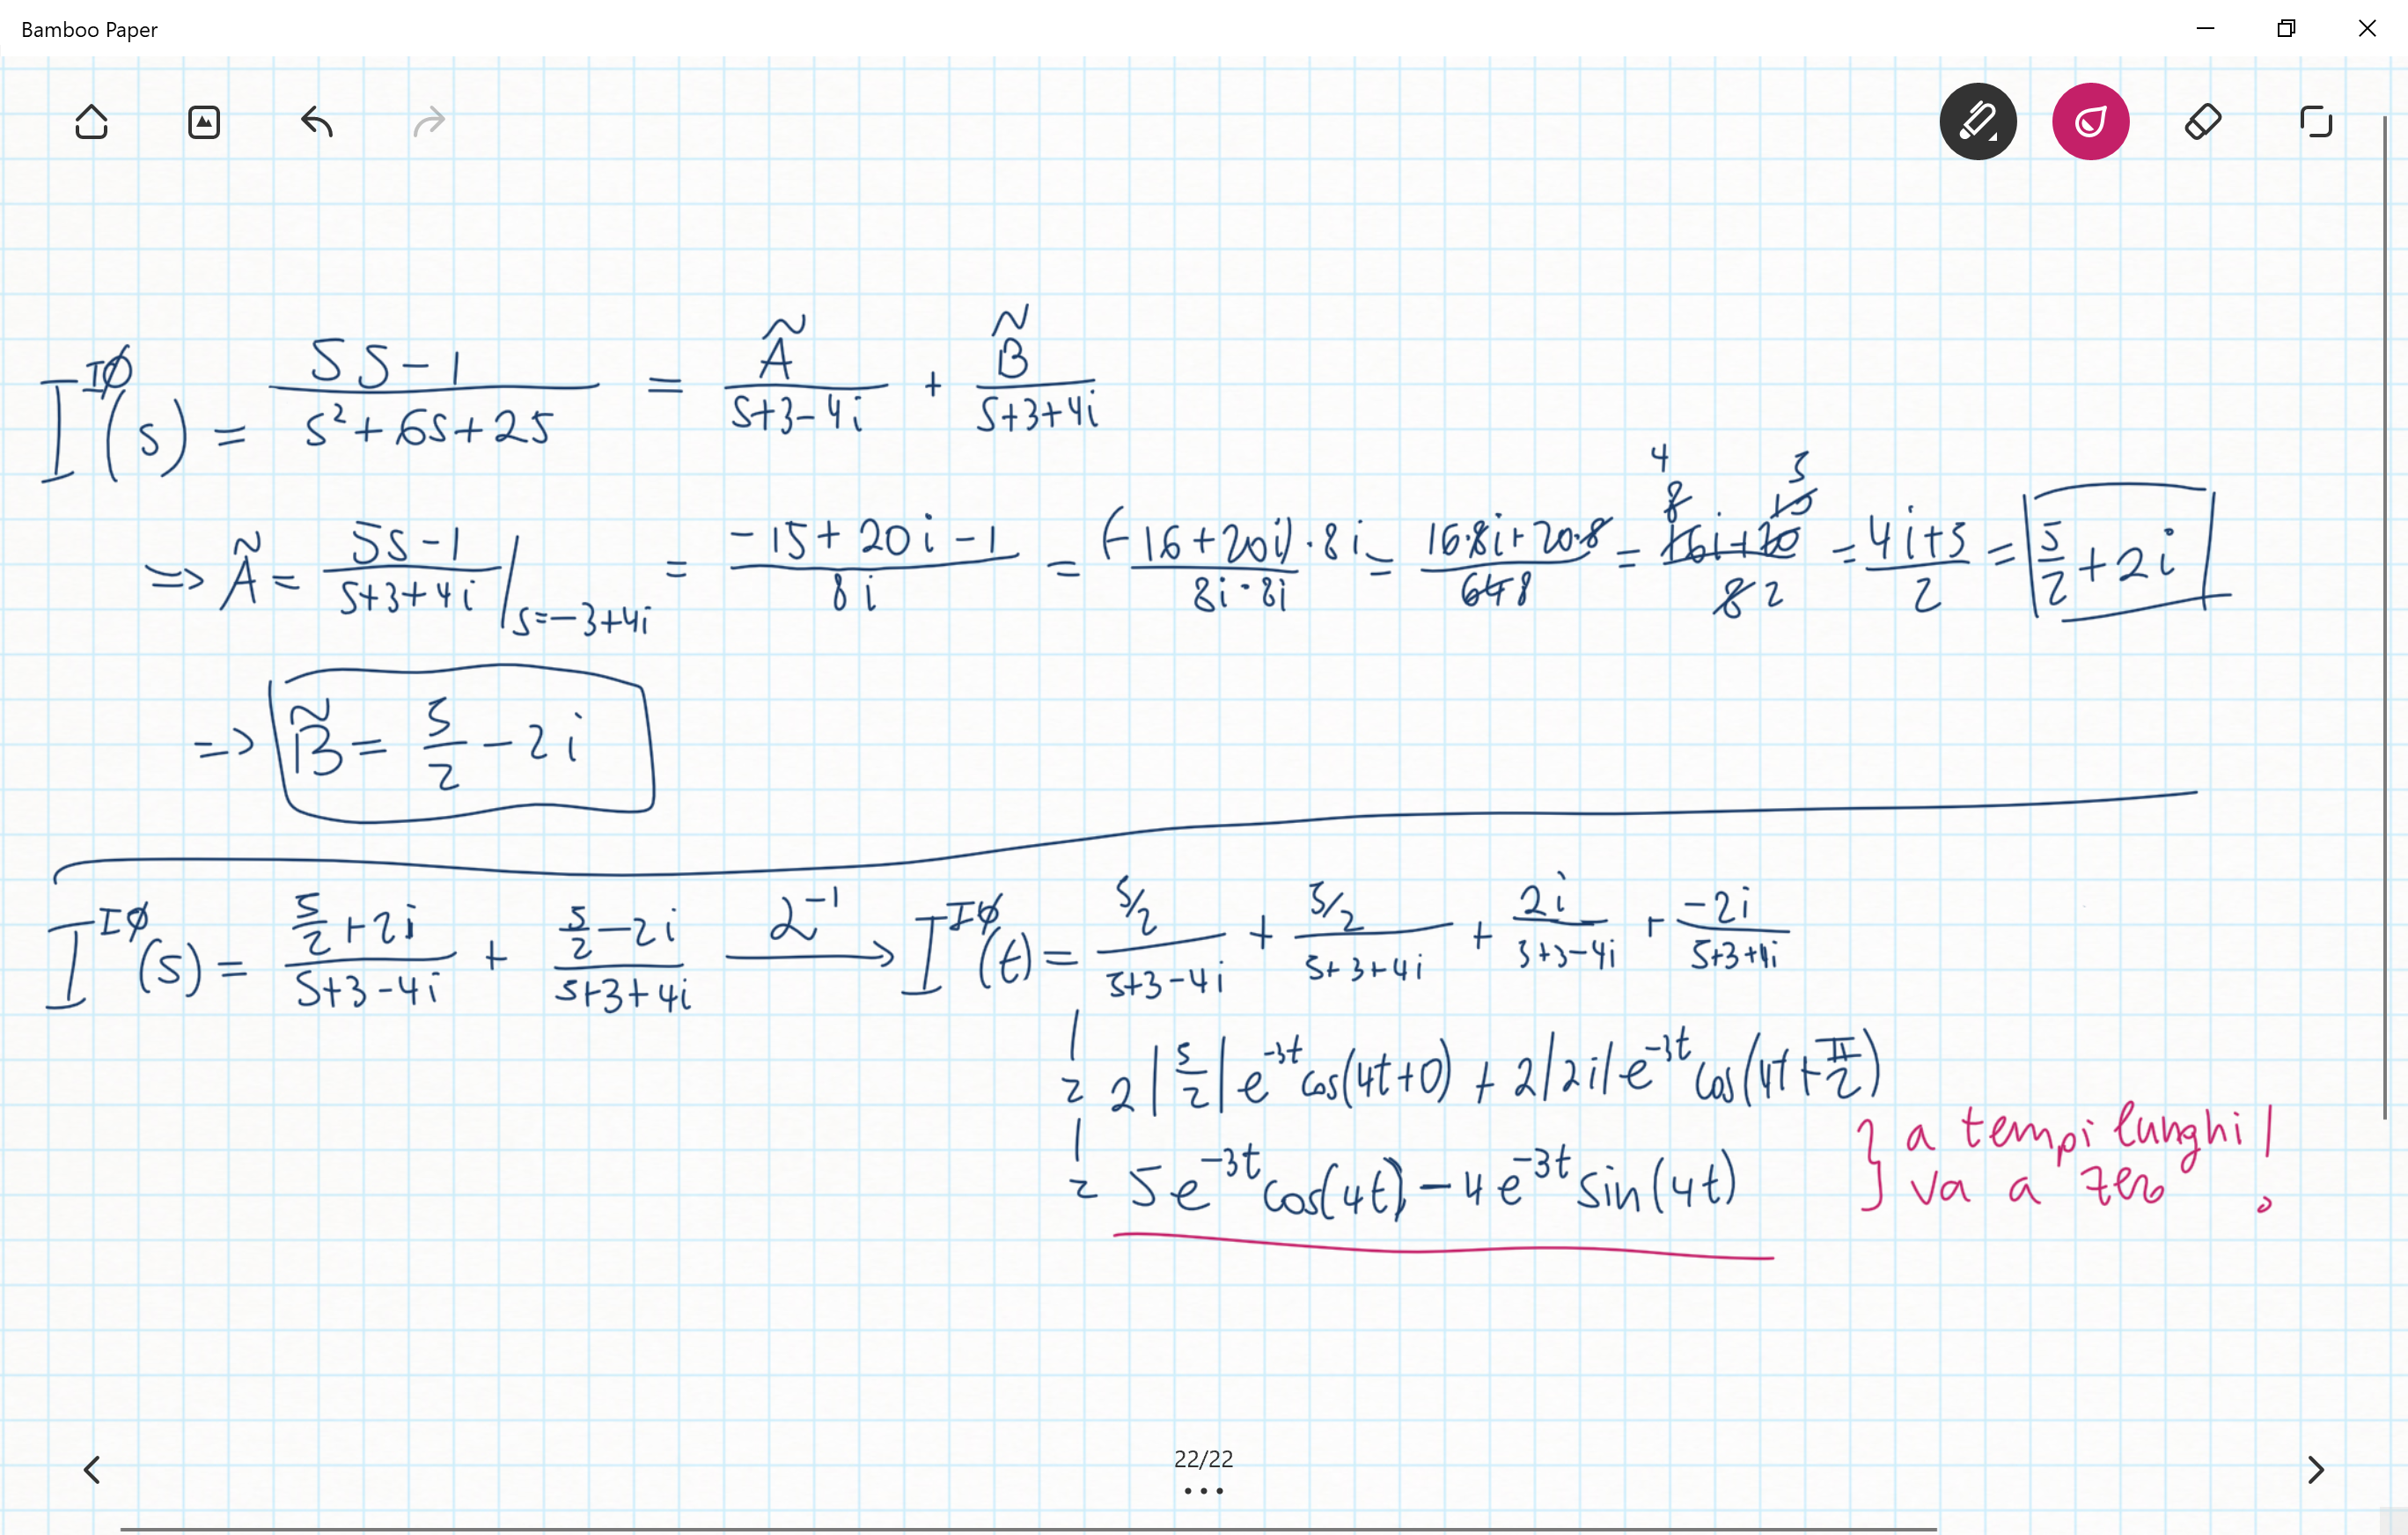 Bamboo Paper
I^{IØ}(s) = (5s-1)/(s²+6s+25) = Ã/(s+3-4i) + B̃/(s+3+4i)
=> Ã = (5s-1)/(s+3+4i) |_{s=-3+4i} = (-15+20i-1)/(8i) = (-16+20i)·8i/(8i·8i) = (16·8i+20·8)/(64 8) = (16i+20)/8 8 10 4 5 2 = (4i+5)/2 = 5/2+2i
=> B̃ = 5/2 - 2i
I^{IØ}(s) = (5/2+2i)/(s+3-4i) + (5/2-2i)/(s+3+4i) ℒ^{-1} → I^{IØ}(t) = (5/2)/(s+3-4i) + (5/2)/(s+3+4i) + 2i/(s+3-4i) + -2i/(s+3+4i)
= 2|5/2|e^{-3t}cos(4t+0) + 2|2i|e^{-3t}cos(4t+π/2)
= 5e^{-3t}cos(4t) - 4e^{-3t}sin(4t)
} a tempi lunghi
va a zero !
22/22